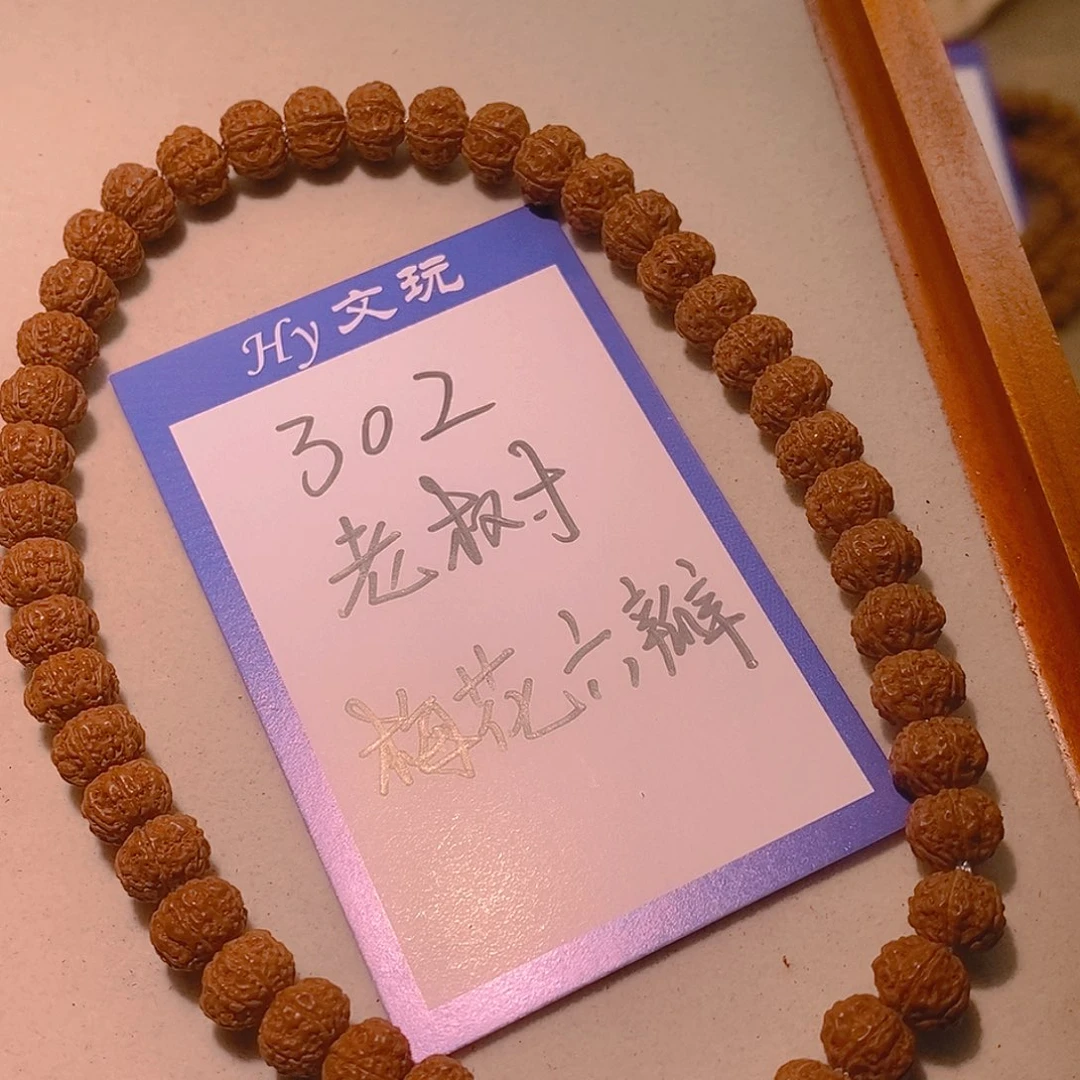 Hy文玩
302
老树
梅花六瓣